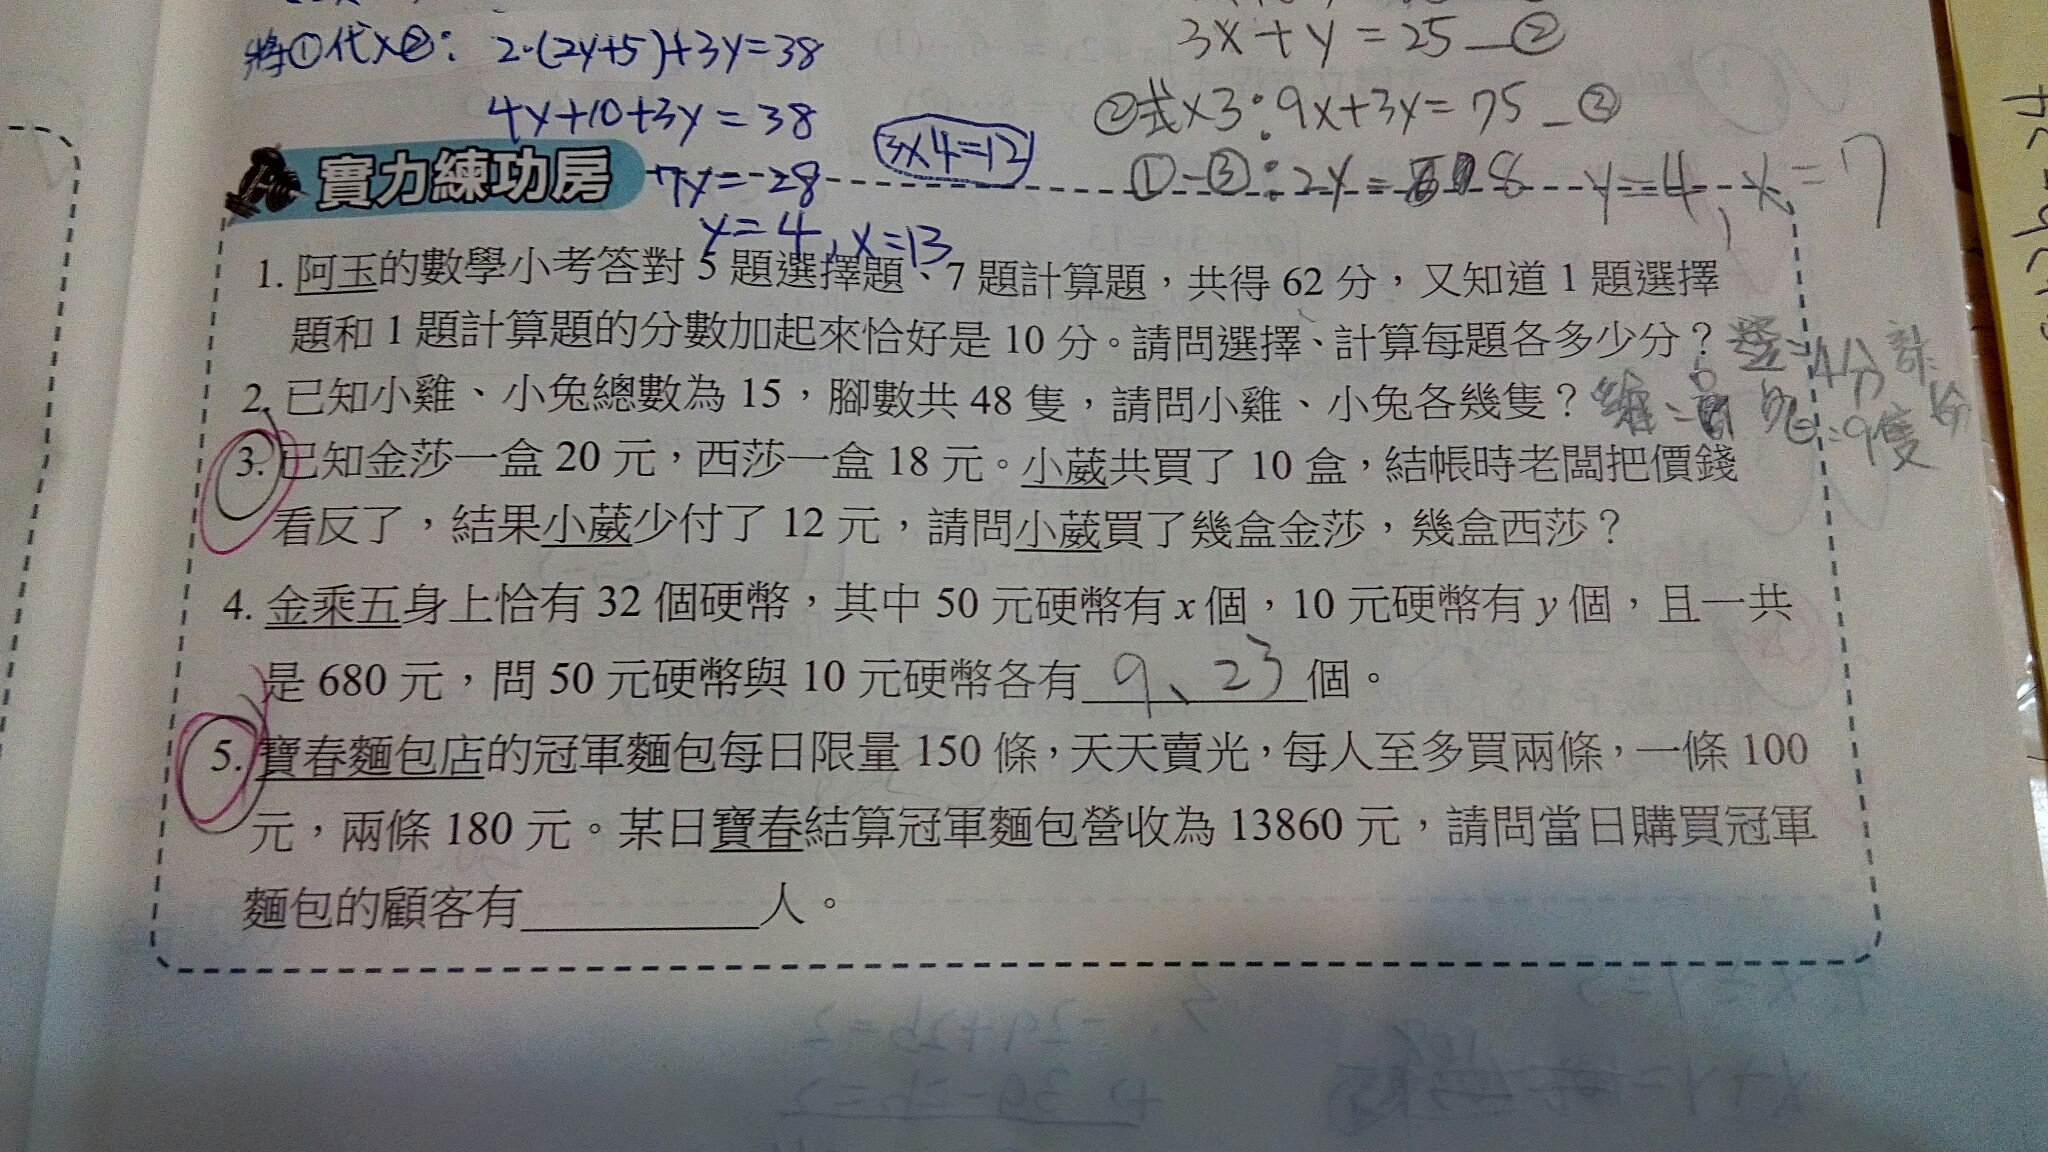 將①代入②: 2·(2y+5)+3y=38
4y+10+3y=38
7y=28
y=4, x=13
3×4=12
3x+y=25—②
②式×3:9x+3y=75—③
①-③:2y=8 y=4, x=7
實力練功房
1. 阿玉的數學小考答對 5 題選擇題、7 題計算題，共得 62 分，又知道 1 題選擇
題和 1 題計算題的分數加起來恰好是 10 分。請問選擇、計算每題各多少分？
2. 已知小雞、小兔總數為 15，腳數共 48 隻，請問小雞、小兔各幾隻？
3. 已知金莎一盒 20 元，西莎一盒 18 元。小葳共買了 10 盒，結帳時老闆把價錢
看反了，結果小葳少付了 12 元，請問小葳買了幾盒金莎，幾盒西莎？
4. 金乘五身上恰有 32 個硬幣，其中 50 元硬幣有 x 個，10 元硬幣有 y 個，且一共
是 680 元，問 50 元硬幣與 10 元硬幣各有 9、23 個。
5. 寶春麵包店的冠軍麵包每日限量 150 條，天天賣光，每人至多買兩條，一條 100
元，兩條 180 元。某日寶春結算冠軍麵包營收為 13860 元，請問當日購買冠軍
麵包的顧客有 人。